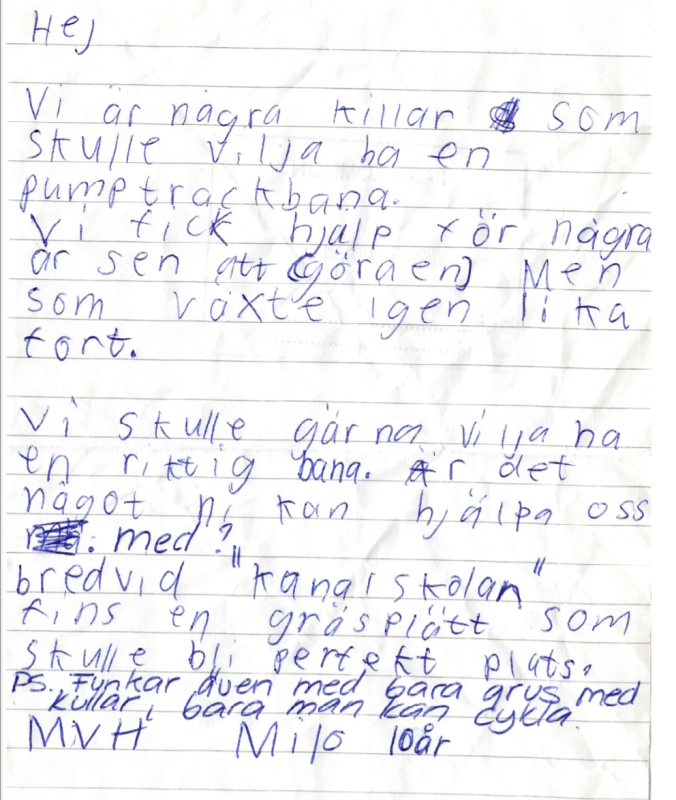 Hej
Vi är några killar som
skulle vilja ha en
pumptrackbana.
Vi fick hjälp för några
år sen att (göra en) Men
som växte igen lika
fort.
Vi skulle gärna vilja ha
en riktig bana. Är det
något ni kan hjälpa oss
med?
bredvid "kanalskolan"
fins en gräsplätt som
skulle bli perfekt plats.
PS. Funkar även med bara grus med
kullar, bara man kan cykla.
MVH Milo 10år